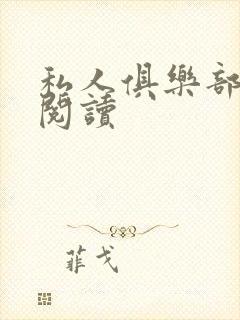 私人俱樂部
閱讀
菲戈